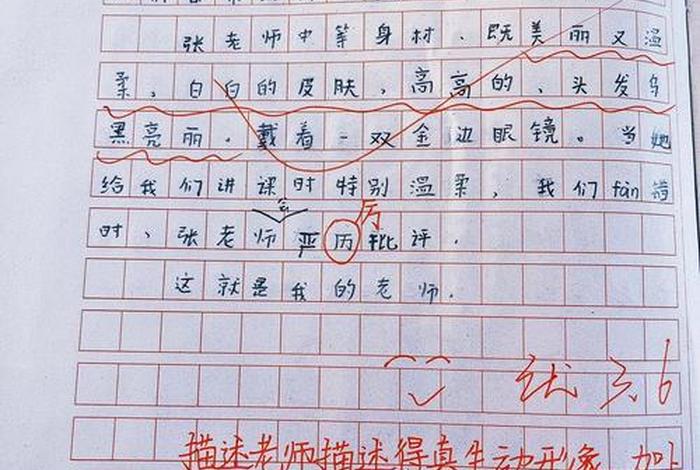 张老师中等身材、既美丽又温
柔，白白的皮肤，高高的，头发乌
黑亮丽，戴着一双金边眼镜。当她
给我们讲课时特别温柔，我们fàn错
会 厉
时、张老师严厉批评.
这就是我的老师.
优 3.6
描述老师描述得真生动形象，加